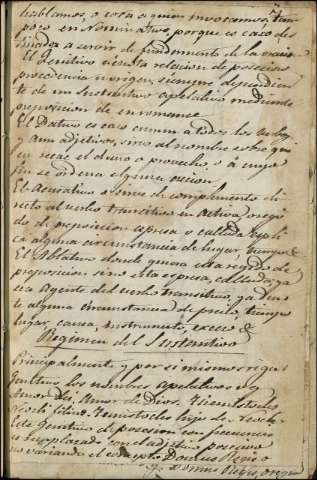 hablamos, o cosa a quien invocamos, tam
poco en Nominativo, porque es caso des
tinado a servir de fundamento de la oracion
El Genitivo vienota relacion de posecion
procedencia u origen, siempre dependien
te de un Sustantivo apelativo mediante
preposicion de en romance
El Dativo es caso comun a todos los verbos
y aun adjetivos, sino al nombre sobre qui
en recae el daño o provecho o á cuyo
fin se ordena alguna accion
El Acusativo o sirve de complemento di
recto al verbo transitivo en activa, o regi
do de preposicion espresa o callada espli
ca alguna circunstancia de lugar, tiempo &
El Ablativo donde quiera esta regido de
preposicion sino esta espresa, callada, ya
sea Agente del verbo transitivo, ya deno
te alguna circunstancia de precio, tiempo
lugar, causa, instrumento, exceso &
Regimen del Sustantivo
Principalmente y por si mismos rigen
Genitivo los nombres apelativos v.g.
Amor Dei, Amor de Dios.
hijo de
Este Genitivo de posesion con frecuencia
es suplantado con el adjetivo posesivo
no variando el concepto
Domus Regis,